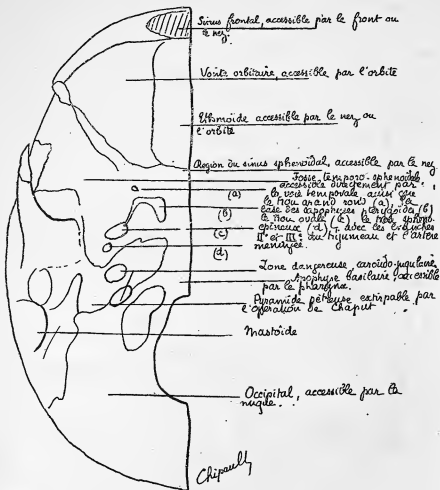 Sinus frontal, accessible par le front ou
le nez.
Voûte orbitaire, accessible par l'orbite
Ethmoïde accessible par le nez ou
l'orbite
Région du sinus sphenoïdal, accessible par le nez
Fosse temporo-sphenoïdale
accessible directement par
(a) la voie temporale ainsi que
le trou grand rond (a), la
(b) base des apophyses pterygoïdes (b)
le trou ovale (c), le trou spheno-
(c) epineux (d), avec les branches
II et III du trijumeau et l'artère
(d) meningée.
Zone dangereuse, carotido-jugulaire
Apophyse basilaire accessible
par le pharynx.
Pyramide pétreuse extirpable par
l'opération de Chaput
Mastoïde
Occipital, accessible par la
nuque.
Chipault